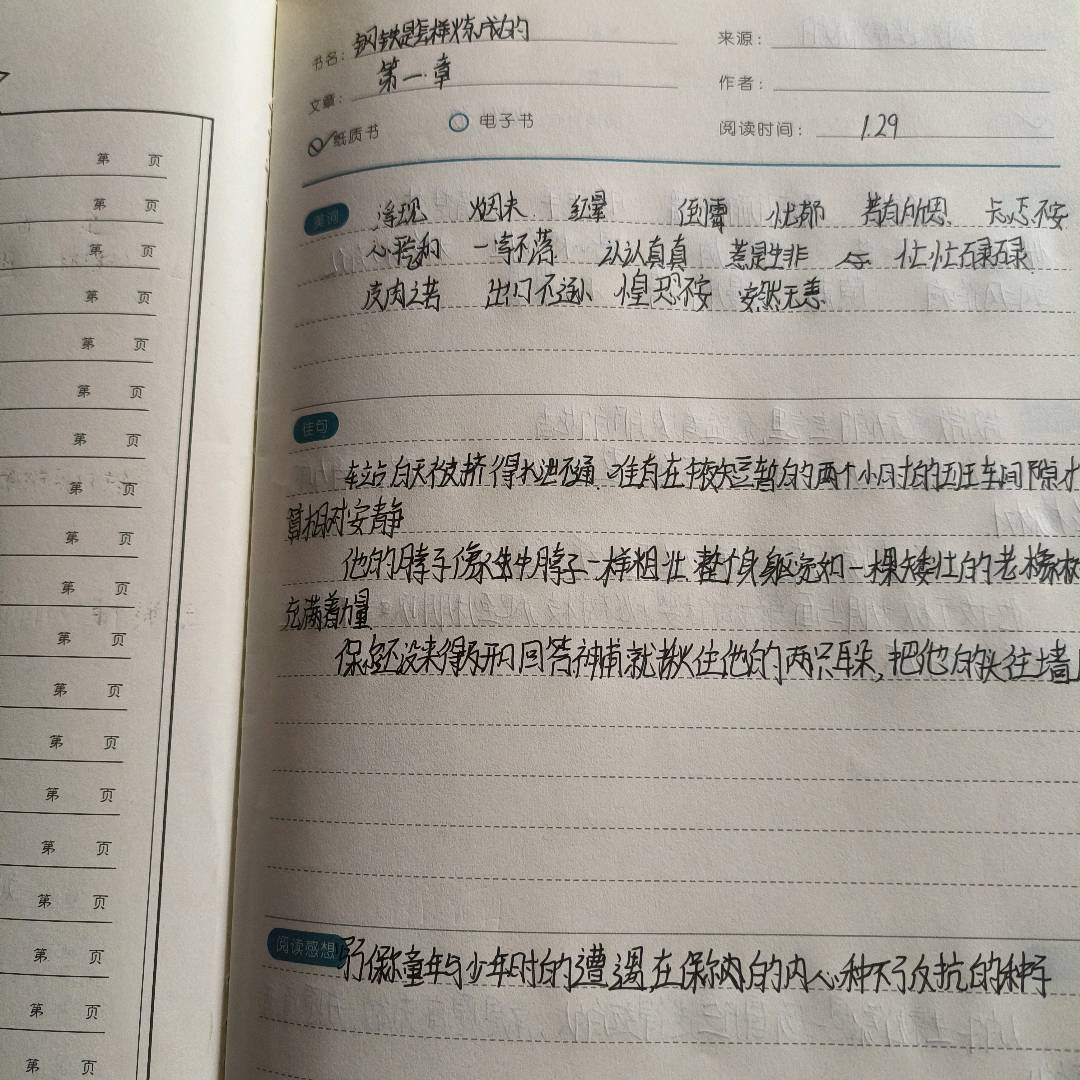 书名：钢铁是怎样炼成的
来源：
文章：第一章
作者：
纸质书 电子书
阅读时间：1.29
美词 浮现 烟末 红晕 倒霉 灶都 若有所思 忐忑不安
一声不落 认认真真 惹是生非 忙忙碌碌
皮肉之苦 出言不逊 惶恐不安 安然无恙
佳句
车站白天被挤得水泄不通，唯有在较短暂的两个小时的班车间隙才
算相对安静
他的脖子像公牛脖子一样粗壮，整个身躯宛如一棵矮壮的老橡树
充满着力量
保尔还没来得及开口回答神甫就揪住他的两只耳朵，把他的头往墙
阅读感想 保尔童年与少年时的遭遇，在保尔的内心种下了反抗的种子
第 页
第 页
第 页
第 页
第 页
第 页
第 页
第 页
第 页
第 页
第 页
第 页
第 页
第 页
第 页
第 页
第 页
第 页
第 页